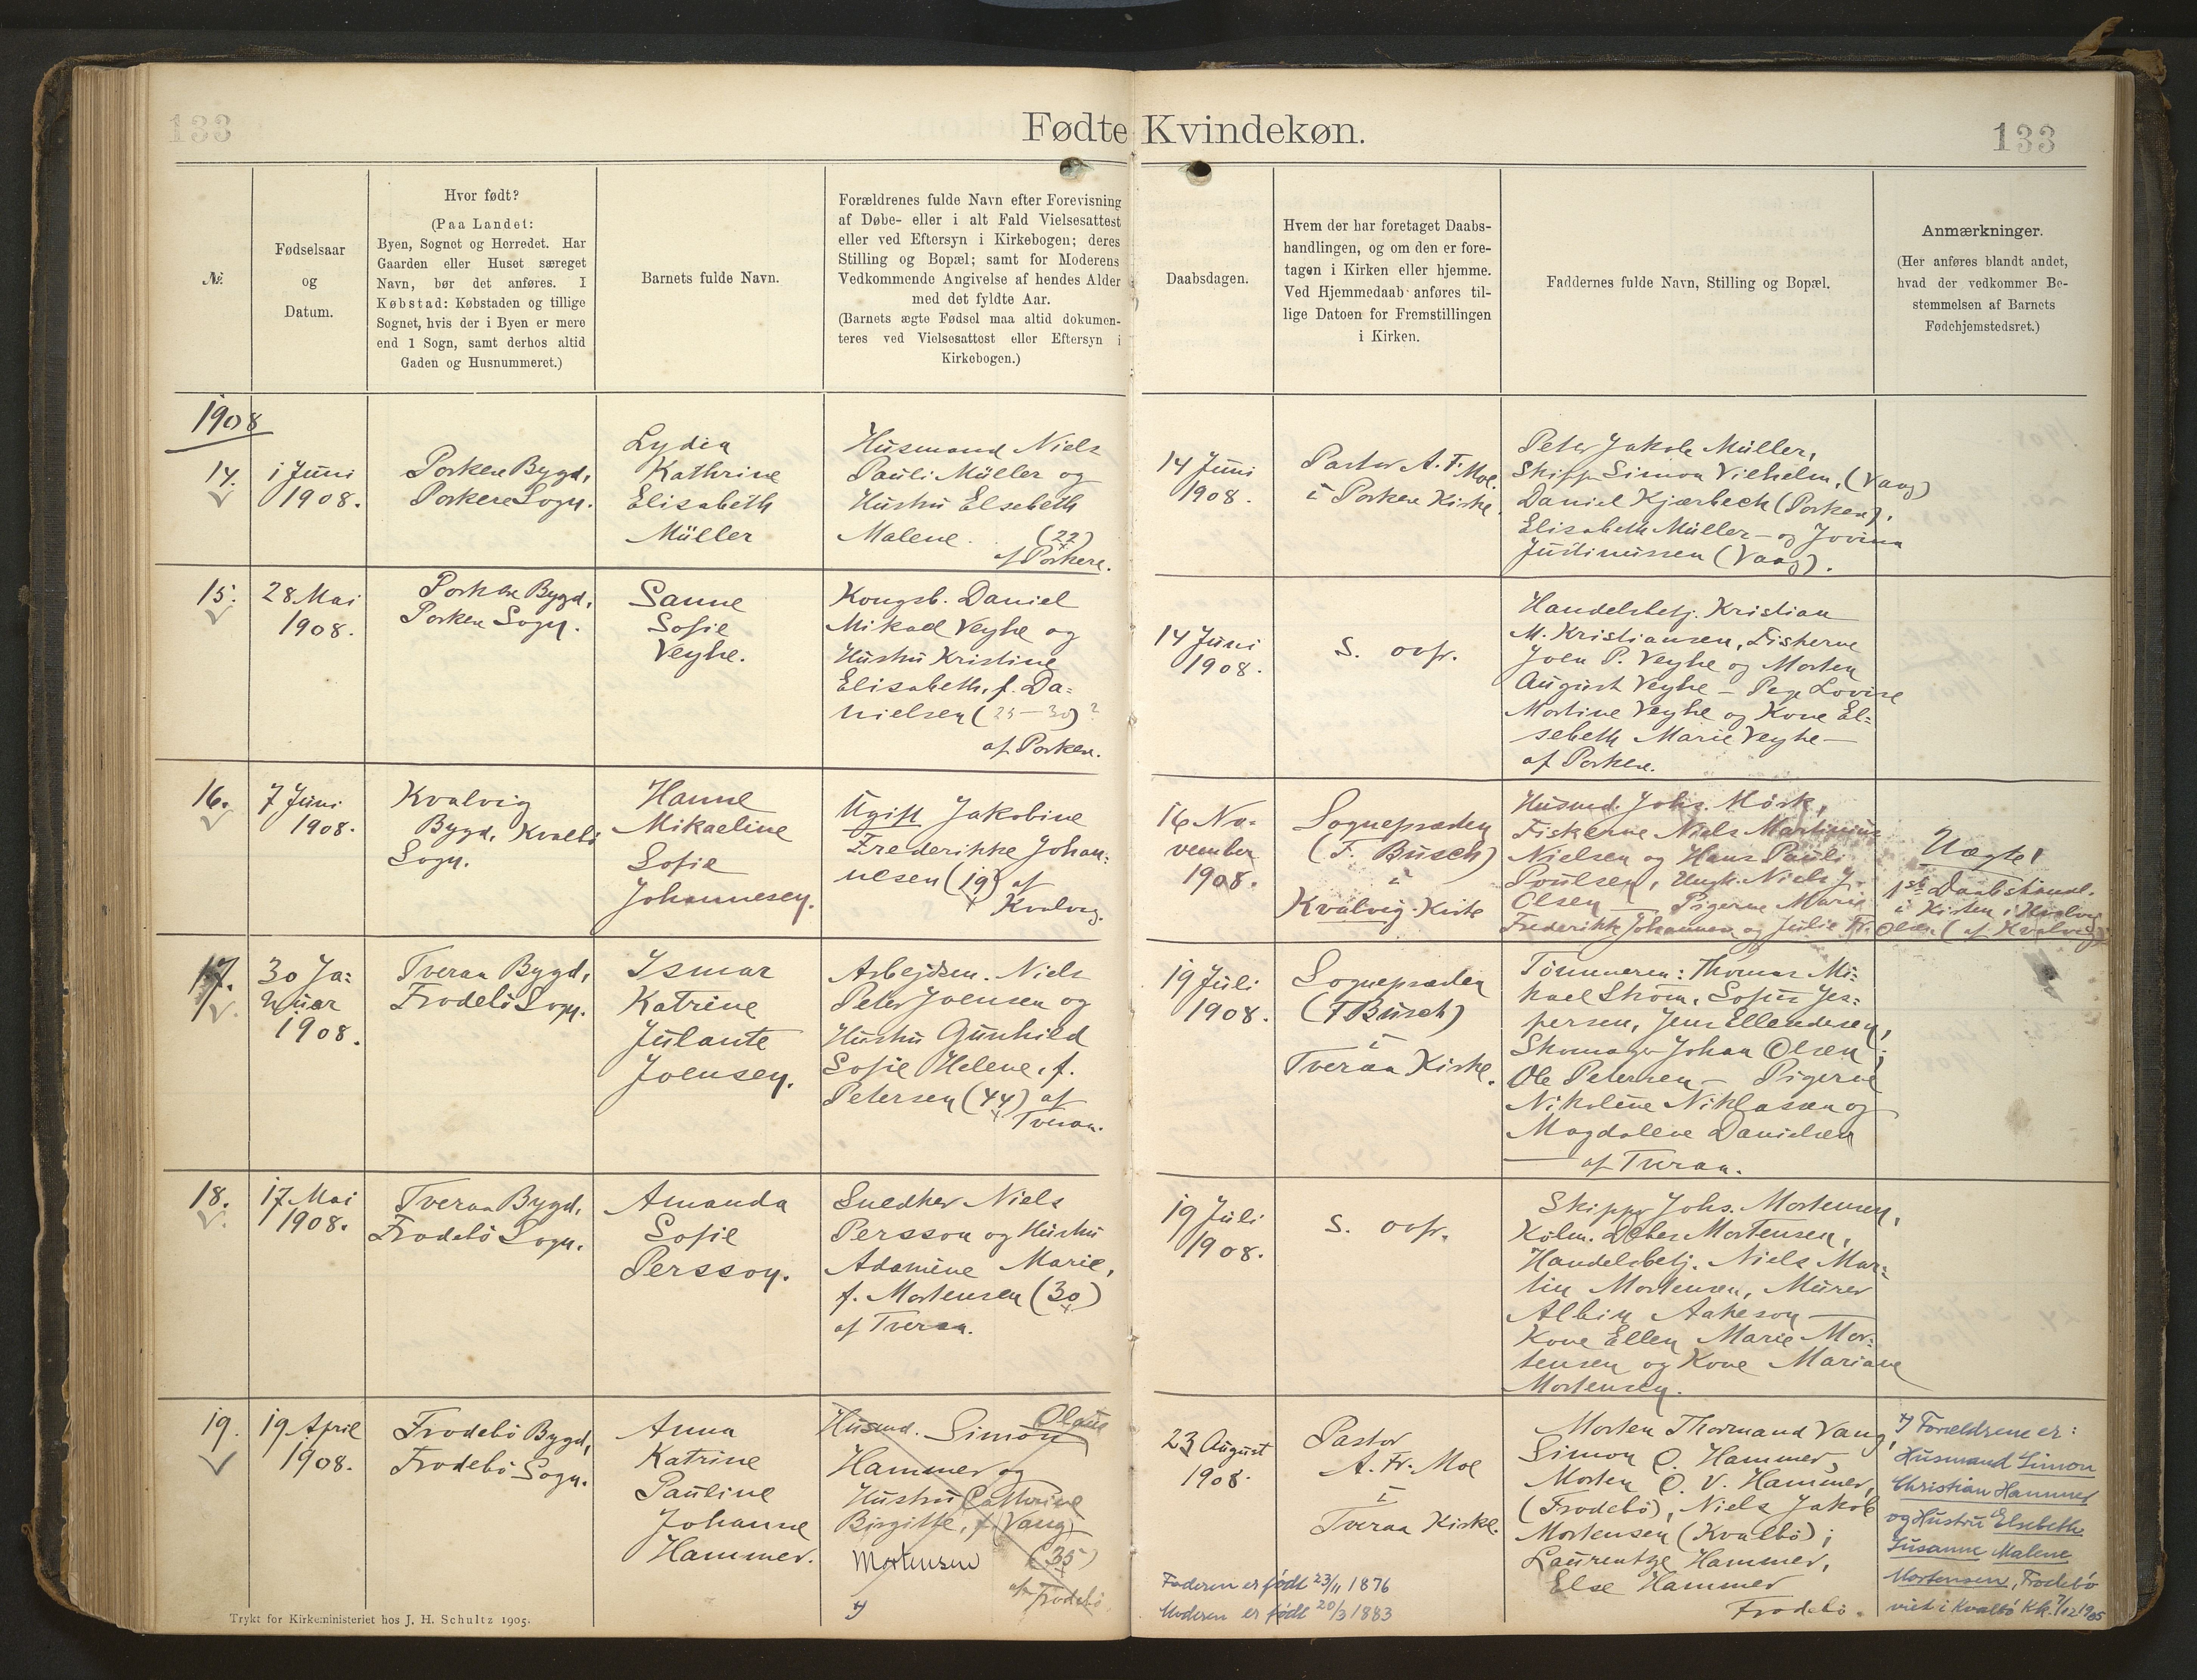 133
Fødte Kvindekøn.
133
№
Fødselsaar
og
Datum.
Hvor født?
(Paa Landet:
Byen, Sognet og Herredet. Har
Gaarden eller Huset særeget
Navn, bør det anføres. I
Købstad: Købstaden og tillige
Sognet, hvis der i Byen er mere
end 1 Sogn, samt derhos altid
Gaden og Husnummeret.)
Barnets fulde Navn.
Forældrenes fulde Navn efter Forevisning
af Døbe- eller i alt Fald Vielsesattest
eller ved Eftersyn i Kirkebogen; deres
Stilling og Bopæl; samt for Moderens
Vedkommende Angivelse af hendes Alder
med det fyldte Aar.
(Barnets ægte Fødsel maa altid dokumen-
teres ved Vielsesattest eller Eftersyn i
Kirkebogen.)
Daabsdagen.
Hvem der har foretaget Daabs-
handlingen, og om den er fore-
tagen i Kirken eller hjemme.
Ved Hjemmedaab anføres til-
lige Datoen for Fremstillingen
i Kirken.
Faddernes fulde Navn, Stilling og Bopæl.
Anmærkninger.
(Her anføres blandt andet,
hvad der vedkommer Be-
stemmelsen af Barnets
Fødehjemstedsret.)
1908
14.
1 Juni
1908.
Porkere Bygd,
Porkere Sogn.
Lydia
Kathrine
Elisabeth
Müller
Husmand Niels
Pauli Müller og
Hustru Elsebeth
Malene. (22)
af Porkere.
14 Juni
1908.
Pastor A. F. Moe.
i Porkere Kirke.
Peter Jakob Müller,
Skipp. Simon Vilhelm, (Vaag)
Daniel Kjærbech (Porkere),
Elisabeth Müller - og Jovina
Justinussen (Vaag).
15.
28 Mai
1908.
Porkere Bygd,
Porkere Sogn.
Sanne
Sofie
Veyhe.
Kongsb. Daniel
Mikael Veyhe og
Hustru Kristine
Elisabeth, f. Da=
nielsen (25-30)?
af Porkere.
14 Juni
1908.
S. ovfr.
Handelsbetj. Kristian
M. Kristiansen, Fiskerne
Joen P. Veyhe og Morten
August Veyhe - Pige Lovise
Martine Veyhe og Kone El=
sebeth Marie Veyhe -
af Porkere.
16.
7 Juni
1908.
Kvalvig
Bygd, Kvalbø
Sogn.
Hanne
Mikaeline
Sofie
Johannesen.
Ugift Jakobine
Frederikke Johan=
nesen (19) af
Kvalvig.
16 No-
vember
1908.
Sognepræsten
(F. Busch)
i
Kvalvig Kirke
Husmd. Johs. Mörk,
Fiskerne Niels Martinius
Nielsen og Hans Pauli
Poulsen, Ungk. Niels J.
Olsen - Pigerne Marie
Frederikke Johannesen og Julie Fr. Olsen (af Kvalvig)
Uægte!
1ste Daabshandl.
i Kirken i Kvalvig
17.
30 Ja=
nuar
1908.
Tveraa Bygd,
Frodebö Sogn.
Ismar
Katrine
Julante
Joensen.
Arbejdsm. Niels
Peter Joensen og
Hustru Gunhild
Sofie Helene, f.
Petersen (44) af
Tveraa.
19 Juli
1908.
Sognepræsten
(F Busch)
i
Tveraa Kirke.
Tömmerm: Thomas Mi=
kael Ström, Sofus Jes=
persen, Jens Ellendesen,
Skomager Johan Olsen;
Ole Petersen - Pigerne
Nikoline Niklasen og
Magdalene Danielsen
af Tveraa.
18.
17 Mai
1908.
Tveraa Bygd,
Frodebö Sogn.
Amanda
Sofie
Persson.
Snedker Niels
Persson og Hustru
Adamine Marie,
f. Mortensen (30)
af Tveraa.
19 Juli
1908.
S. ovfr.
Skipper Johs. Mortensen,
Kölm. Peter Mortensen,
Handelsbetj. Niels Mar=
tin Mortensen, Murer
Albin Aakeson -
Kone Ellen Marie Mor=
tensen og Kone Mariane
Mortensen.
19.
19 April
1908.
Frodebö Bygd,
Frodebö Sogn.
Anna
Katrine
Pauline
Johanne
Hammer.
Husmd. Simon
Hammer og
Hustru Cathrine
Birgitte, f. Vang
Mortensen (35)
af Frodebö
23 August
1908.
Pastor
A. Fr. Moe
i
Tveraa Kirke.
Faderen er født 23/11 1876
Moderen er født 20/3 1883
Morten Thormand Vang,
Simon O. Hammer,
Morten O. V. Hammer,
(Frodebö), Niels Jakob
Mortensen (Kvalbö);
Laurentze Hammer,
Else Hammer
Frodebö.
Forældrene er:
Husmand Simon
Christian Hammer
og Hustru Elsebeth
Susanne Malene
Mortensen, Frodebö
viet i Kvalbö Kk. 7/12 1905
Trykt for Kirkeministeriet hos J. H. Schultz 1905.